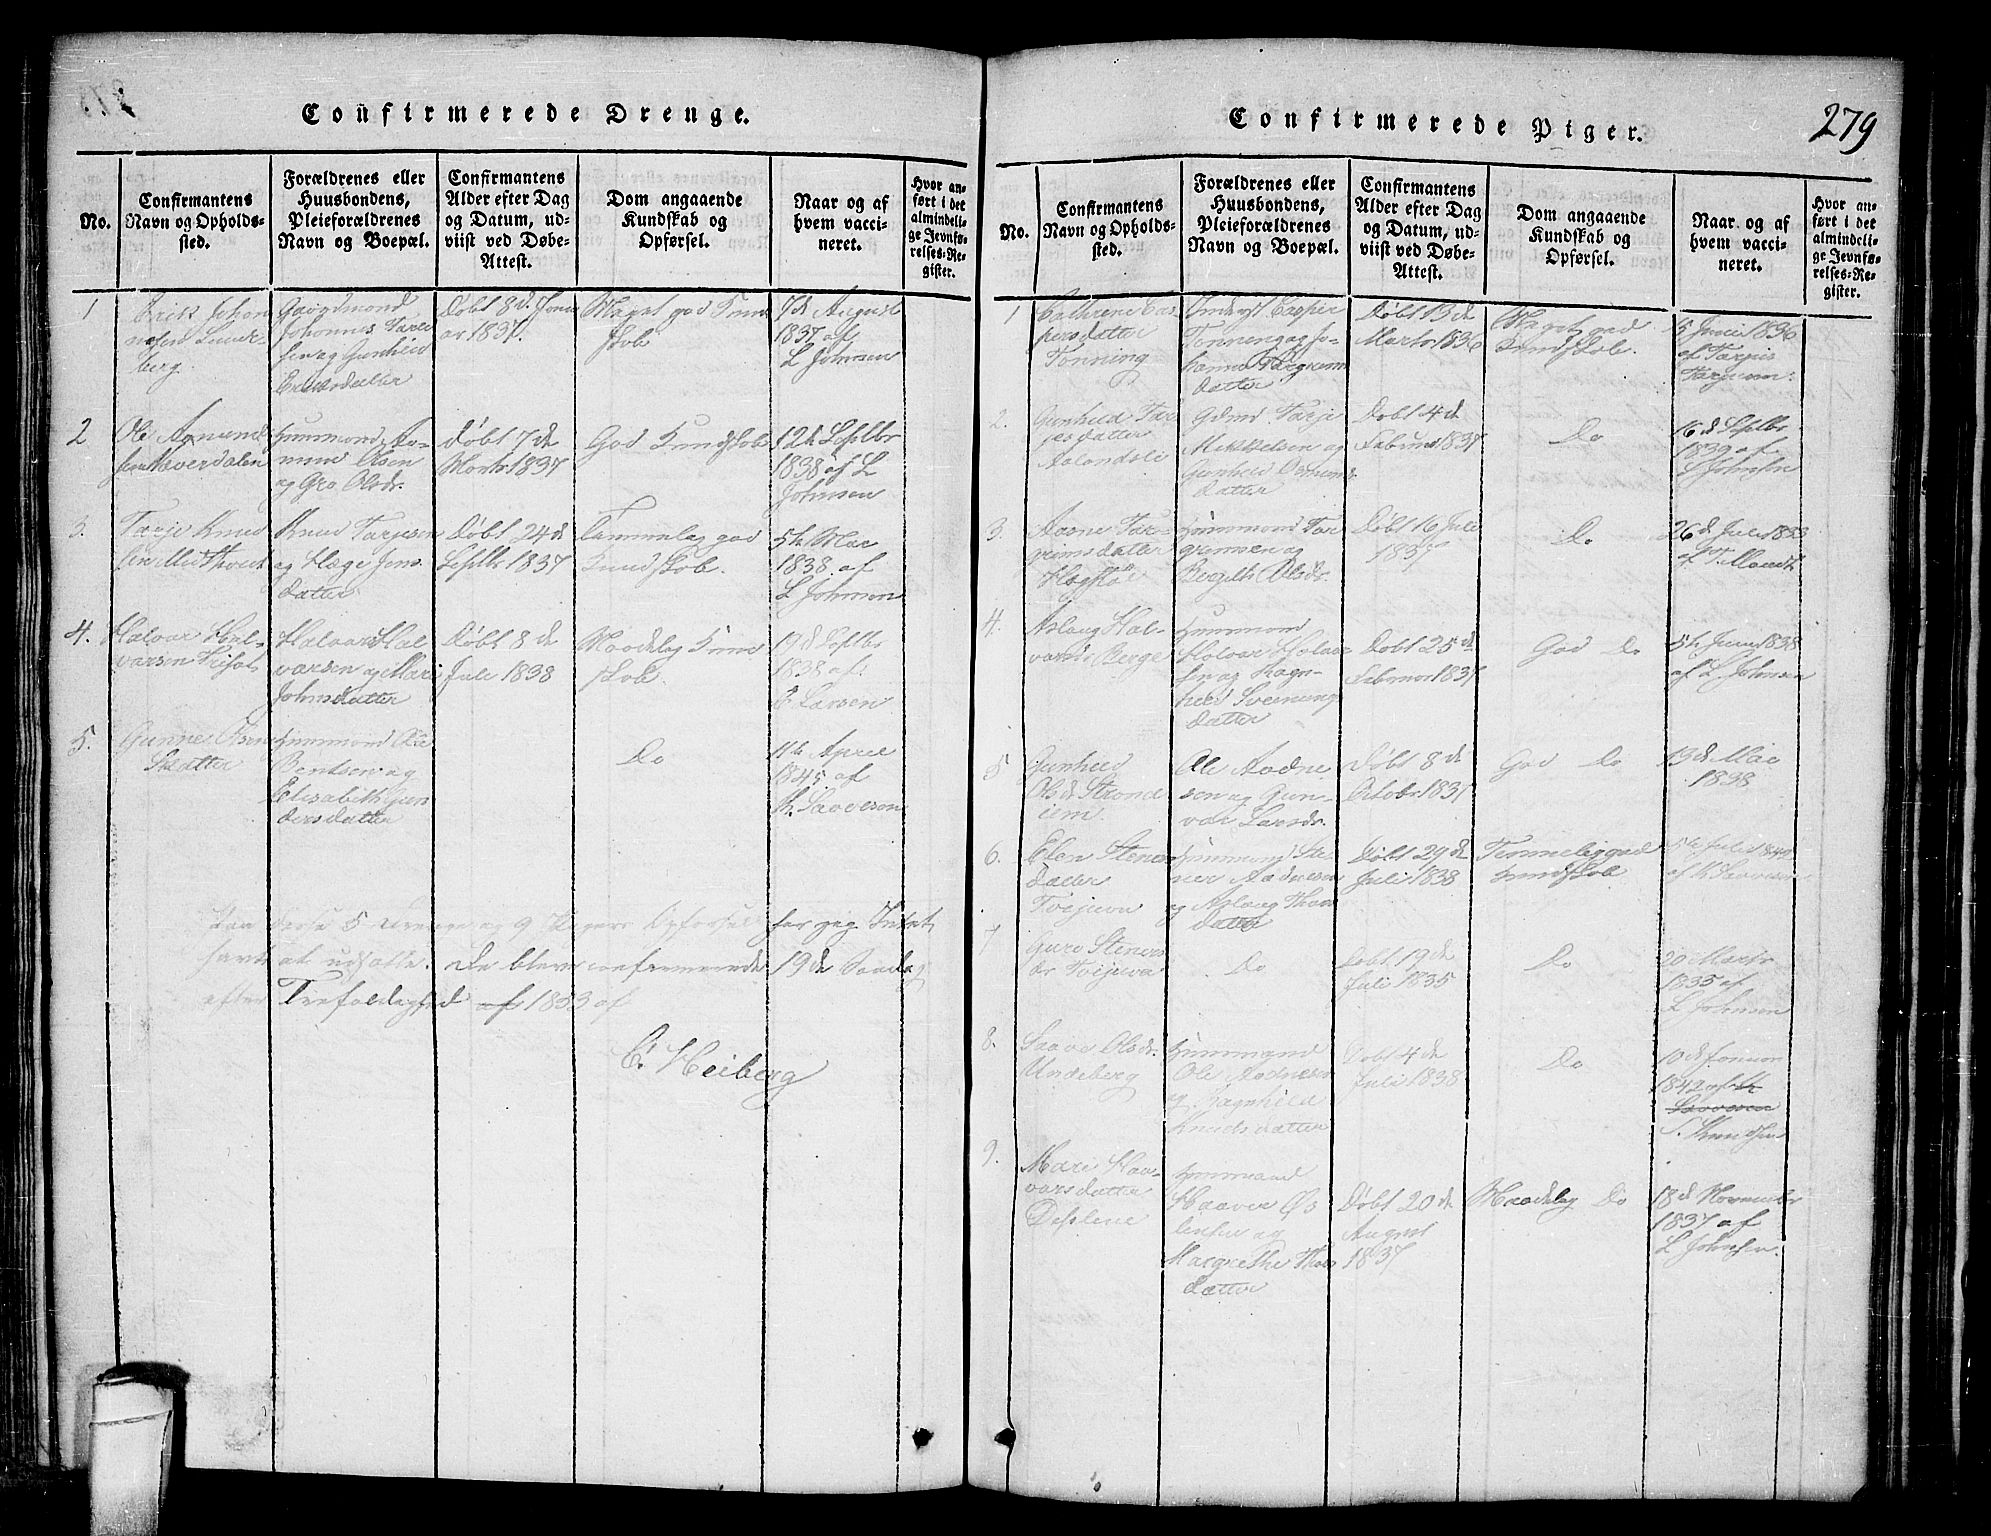 Confirmerede Drenge.
No.
Confirmantens
Navn og Opholds-
sted.
Forældrenes eller
Huusbondens,
Pleieforældrenes
Navn og Boepæl.
Confirmantens
Alder efter Dag
og Datum, ud-
viist ved Døbe-
Attest.
Dom angaaende
Kundskab og
Opførsel.
Naar og af
hvem vacci-
neret.
Hvor an-
ført i det
almindeli-
ge Jevnfø-
relses-Re-
gister.
1
Erik Johan
nesen Lunde-
berg.
Gaardmand
Johannes Tarje
sen og Gunhild
Eriksdatter
Døbt 8 d. Janu
ar 1837.
Meget god Kund
skab
7 d August
1837 af
L Johnsen
2
Ole Aamund
sen Naverdalen
Huusmand Aa-
mund Olsen
og Gro Olsdr.
Døbt 7 de
Marts 1837
God Kundskab
12te Septbr
1838 af L
Johnsen
3.
Tarje Knud
sen
Knud Tarjesen
og Hæge Jens
datter
Døbt 24 de
Septb 1837
Temmelig god
Kundskab.
5te Mai
1838 af
L Johnsen
4.
Halvor Hal-
varsen
Halvar Hal
varsen og Mari
Johnsdatter
Døbt 8 de
Juli 1838
Maadelig Kund
skab.
19 d Septbr
1838 af
E Larsen
5.
Gunne Olsen
Huusmand Ole
Bentsen og
Elisabeth Gun
dersdatter
Do
11te April
1845 af
Th. Saavesen
5 Drenge og 9 Pigers Opførsel har jeg Intet
havt at udsætte. De bleve confirmerede 19 de Søndag
efter Trefoldighed af 1853 af
C. Heiberg
Confirmerede Piger.
279
No.
Confirmantens
Navn og Opholds-
sted.
Forældrenes eller
Huusbondens,
Pleieforældrenes
Navn og Boepæl.
Confirmantens
Alder efter Dag
og Datum, ud-
viist ved Døbe-
Attest.
Dom angaaende
Kundskab og
Opførsel.
Naar og af
hvem vacci-
neret.
Hvor an-
ført i det
almindeli-
ge Jevnfø-
relses-Re-
gister.
1
Cathrene Cas
persdatter
Tonning
Casper
Tonning og Jo-
hanne Targrim
datter
Døbt 13 de
Marts 1836
Meget god
Kundskab.
5 Juni 1836
af Tarjus
Tarjesen.
2.
Gunhild Tar
jesdatter
Aalandsli
Gdmd. Tarje
Mikkelsen og
Gunhild Osmunds
datter
Døbt 4 de
Februar 1837
Do
16 d Septbr
1839 af
L Johnsen
3.
Aasne Tar-
grimsdatter
Huusmand Tar
grimsen og
Bergith Olsdr.
Døbt 16 Juli
1837
Do
26 d Juli 1838
af T. Mandt
4.
Aslaug Hal-
varsdr Berge
Huusmand
Halvar Halvar
sen og Ragn-
hild Sveinung
datter
Døbt 25 de
Februar 1837
God Do
5te Juni 1838
af L. Johnsen
5
Gunhild
Olsd. Strond
iem.
Ole Aadne
sen og Gun-
vor Larsdr.
Døbt 8 de
Octobr. 1837
God Do
13 d Mai
1838
6.
Elen Steners
datter
Tvejuva
Huusmand Ste
ner Aadnesen
og Aslaug Thor
datter
Døbt 29 de
Juli 1838
Temmelig god
Kundskab
5te Juli
7
Guro Steners
dr Tvejuva
Do
Døbt 19 de
Juli 1835
Do
20 Marts
1835 af
L Johnsen
8.
Saave Olsdr.
Undeberg
Huusmand
Ole Aadnesen
og Ragnhild
Knudsdatter
Døbt 4 de
Juli 1838
Do
10 d Januar
1842 af
Saavesen
S. Knudsen
9.
Mari Haa-
varsdatter
Huusmand
Haaver Øs
tensen og
Margrethe Thors
datter
Døbt 20 de
August
1837
Maadelig Do
18 d November
1837 af
L Johnsen.